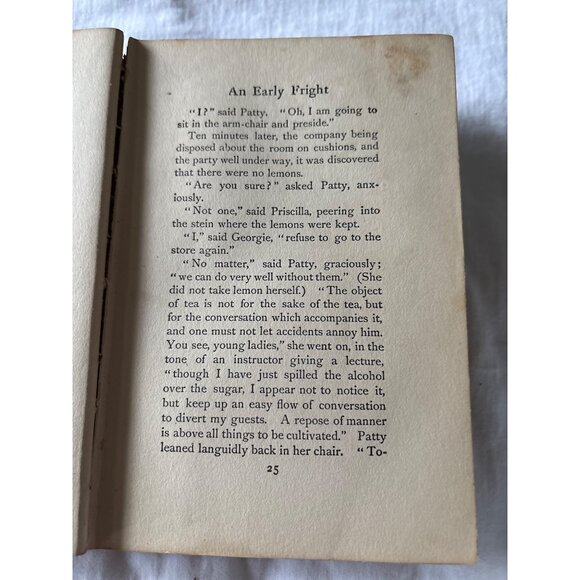 An Early Fright
"I?" said Patty. "Oh, I am going to
sit in the arm-chair and preside."
Ten minutes later, the company being
disposed about the room on cushions, and
the party well under way, it was discovered
that there were no lemons.
"Are you sure?" asked Patty, anx-
iously.
"Not one," said Priscilla, peering into
the stein where the lemons were kept.
"I," said Georgie, "refuse to go to the
store again."
"No matter," said Patty, graciously;
"we can do very well without them." (She
did not take lemon herself.) "The object
of tea is not for the sake of the tea, but
for the conversation which accompanies it,
and one must not let accidents annoy him.
You see, young ladies," she went on, in the
tone of an instructor giving a lecture,
"though I have just spilled the alcohol
over the sugar, I appear not to notice it,
but keep up an easy flow of conversation
to divert my guests. A repose of manner
is above all things to be cultivated." Patty
leaned languidly back in her chair. "To-
25